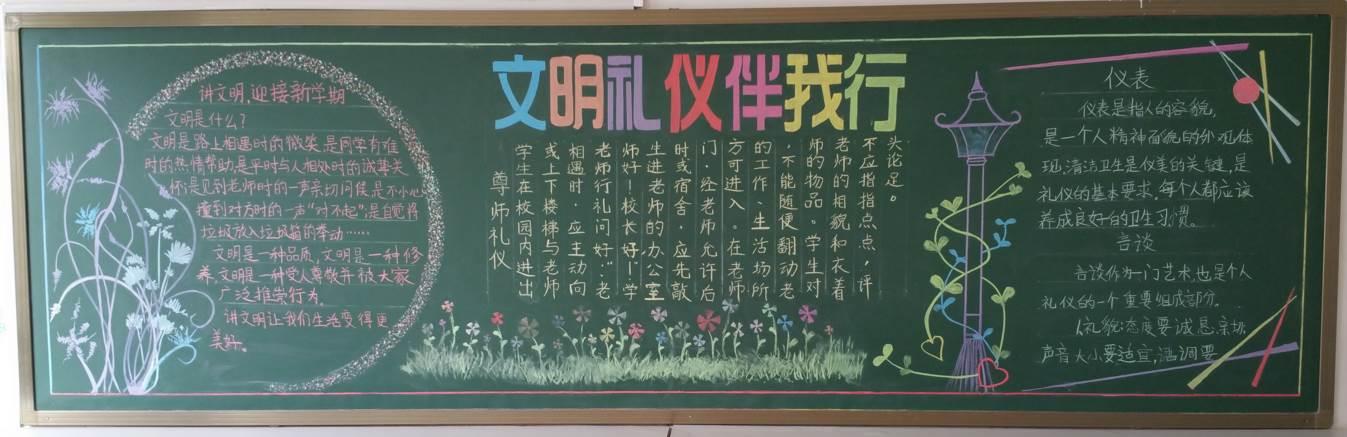 文明礼仪伴我行
讲文明，迎接新学期
文明是什么？
文明是路上相遇时的微笑，是同学有难
时的热情帮助，是平时与人相处时的诚恳关
怀，是见到老师时的一声亲切问候，是不小心
撞到对方时的一声“对不起”，是自觉将
垃圾放入垃圾箱的举动……
文明是一种品质，文明是一种修
养，文明是一种受人尊敬并被大家
广泛推崇行为。
讲文明让我们生活变得更
美好。
尊师礼仪
学生在校园内进出
或上下楼梯与老师
相遇时，应主动向
老师行礼问好：“老
师好！校长好！”学
生进老师的办公室
时或宿舍，应先敲
门，经老师允许后
方可进入。在老师
的工作、生活场所
，不能随便翻动老
师的物品。学生对
老师的相貌和衣着
不应指指点点，评
头论足。
仪表
仪表是指人的容貌，
是一个人精神面貌的外观体
现，清洁卫生是仪美的关键，是
礼仪的基本要求。每个人都应该
养成良好的卫生习惯。
言谈
言谈作为一门艺术，也是个人
礼仪的一个重要组成部分。
礼貌：态度要诚恳、亲切；
声音大小要适宜，语调要